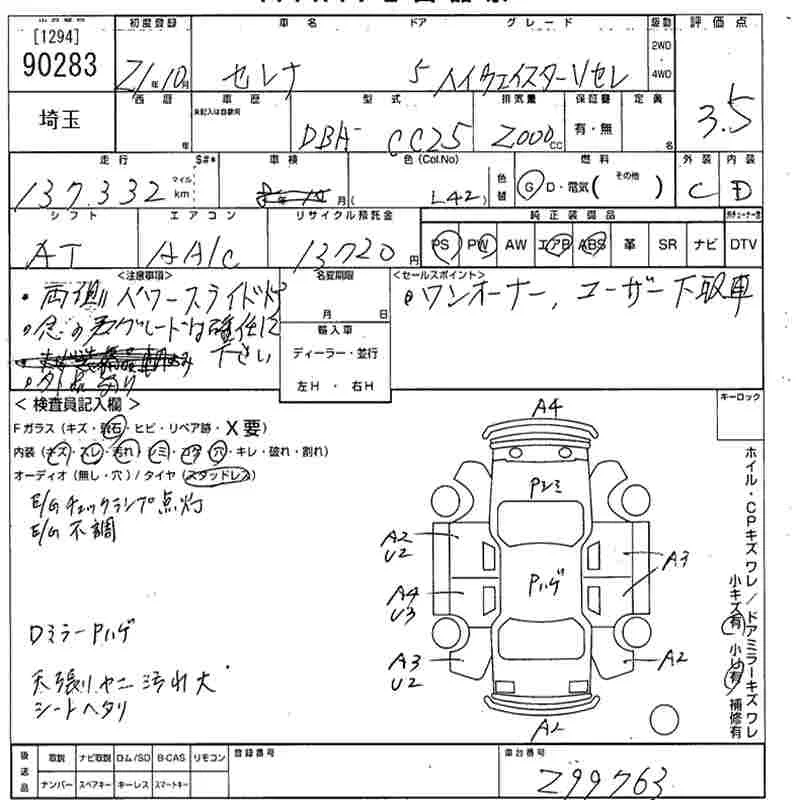 [1294]
90283
埼玉
初度登録
21年10月
車名
セレナ
ドア
5
グレード
ハイウェイスターVセレ
駆動
2WD
4WD
評価点
3.5
西暦
年
車歴
未記入は自家用
型式
DBA- CC25
排気量
2000cc
保証書
有・無
定員
名
走行
137,332
マイル
km
S#*
車検
年 月
色(Col.No)
(L42)
色替
燃料
G D・電気( その他 )
外装
C
内装
D
シフト
AT
エアコン
AA/C
リサイクル預託金
13720円
純正装備品
PS PW AW エアB ABS 革 SR ナビ DTV
<注意事項>
・両側パワースライドドア
下さい
名変期限
月 日
輸入車
ディーラー・並行
左H ・ 右H
<セールスポイント>
・ワンオーナー、ユーザー下取車
<検査員記入欄>
Fガラス(キズ・飛石・ヒビ・リペア跡・X要)
内装(キズ・スレ・汚れ・シミ・コゲ・穴・キレ・破れ・割れ)
オーディオ(無し・穴)/タイヤ(スタッドレス)
E/Gチェックランプ点灯
E/G不調
Dミラー Pハゲ
天張リヤニ汚れ大
シートヘタリ
キーロック
A4
Pシミ
A2
U2
A3
Pハゲ
A4
U3
A3
U2
A2
A2
ホイル・CPキズ ワレ/ドアミラーキズ ワレ
小キズ有 小凹有 補修有
後送品
取説 ナビ取説 ロム/SD B-CAS リモコン
ナンバー スペアキー キーレス スマートキー
登録番号
車台番号
299763